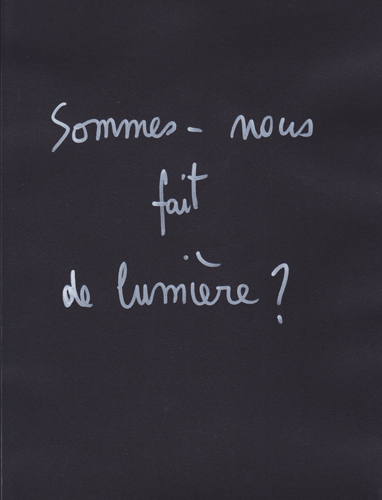 Sommes-nous
fait
de lumière ?